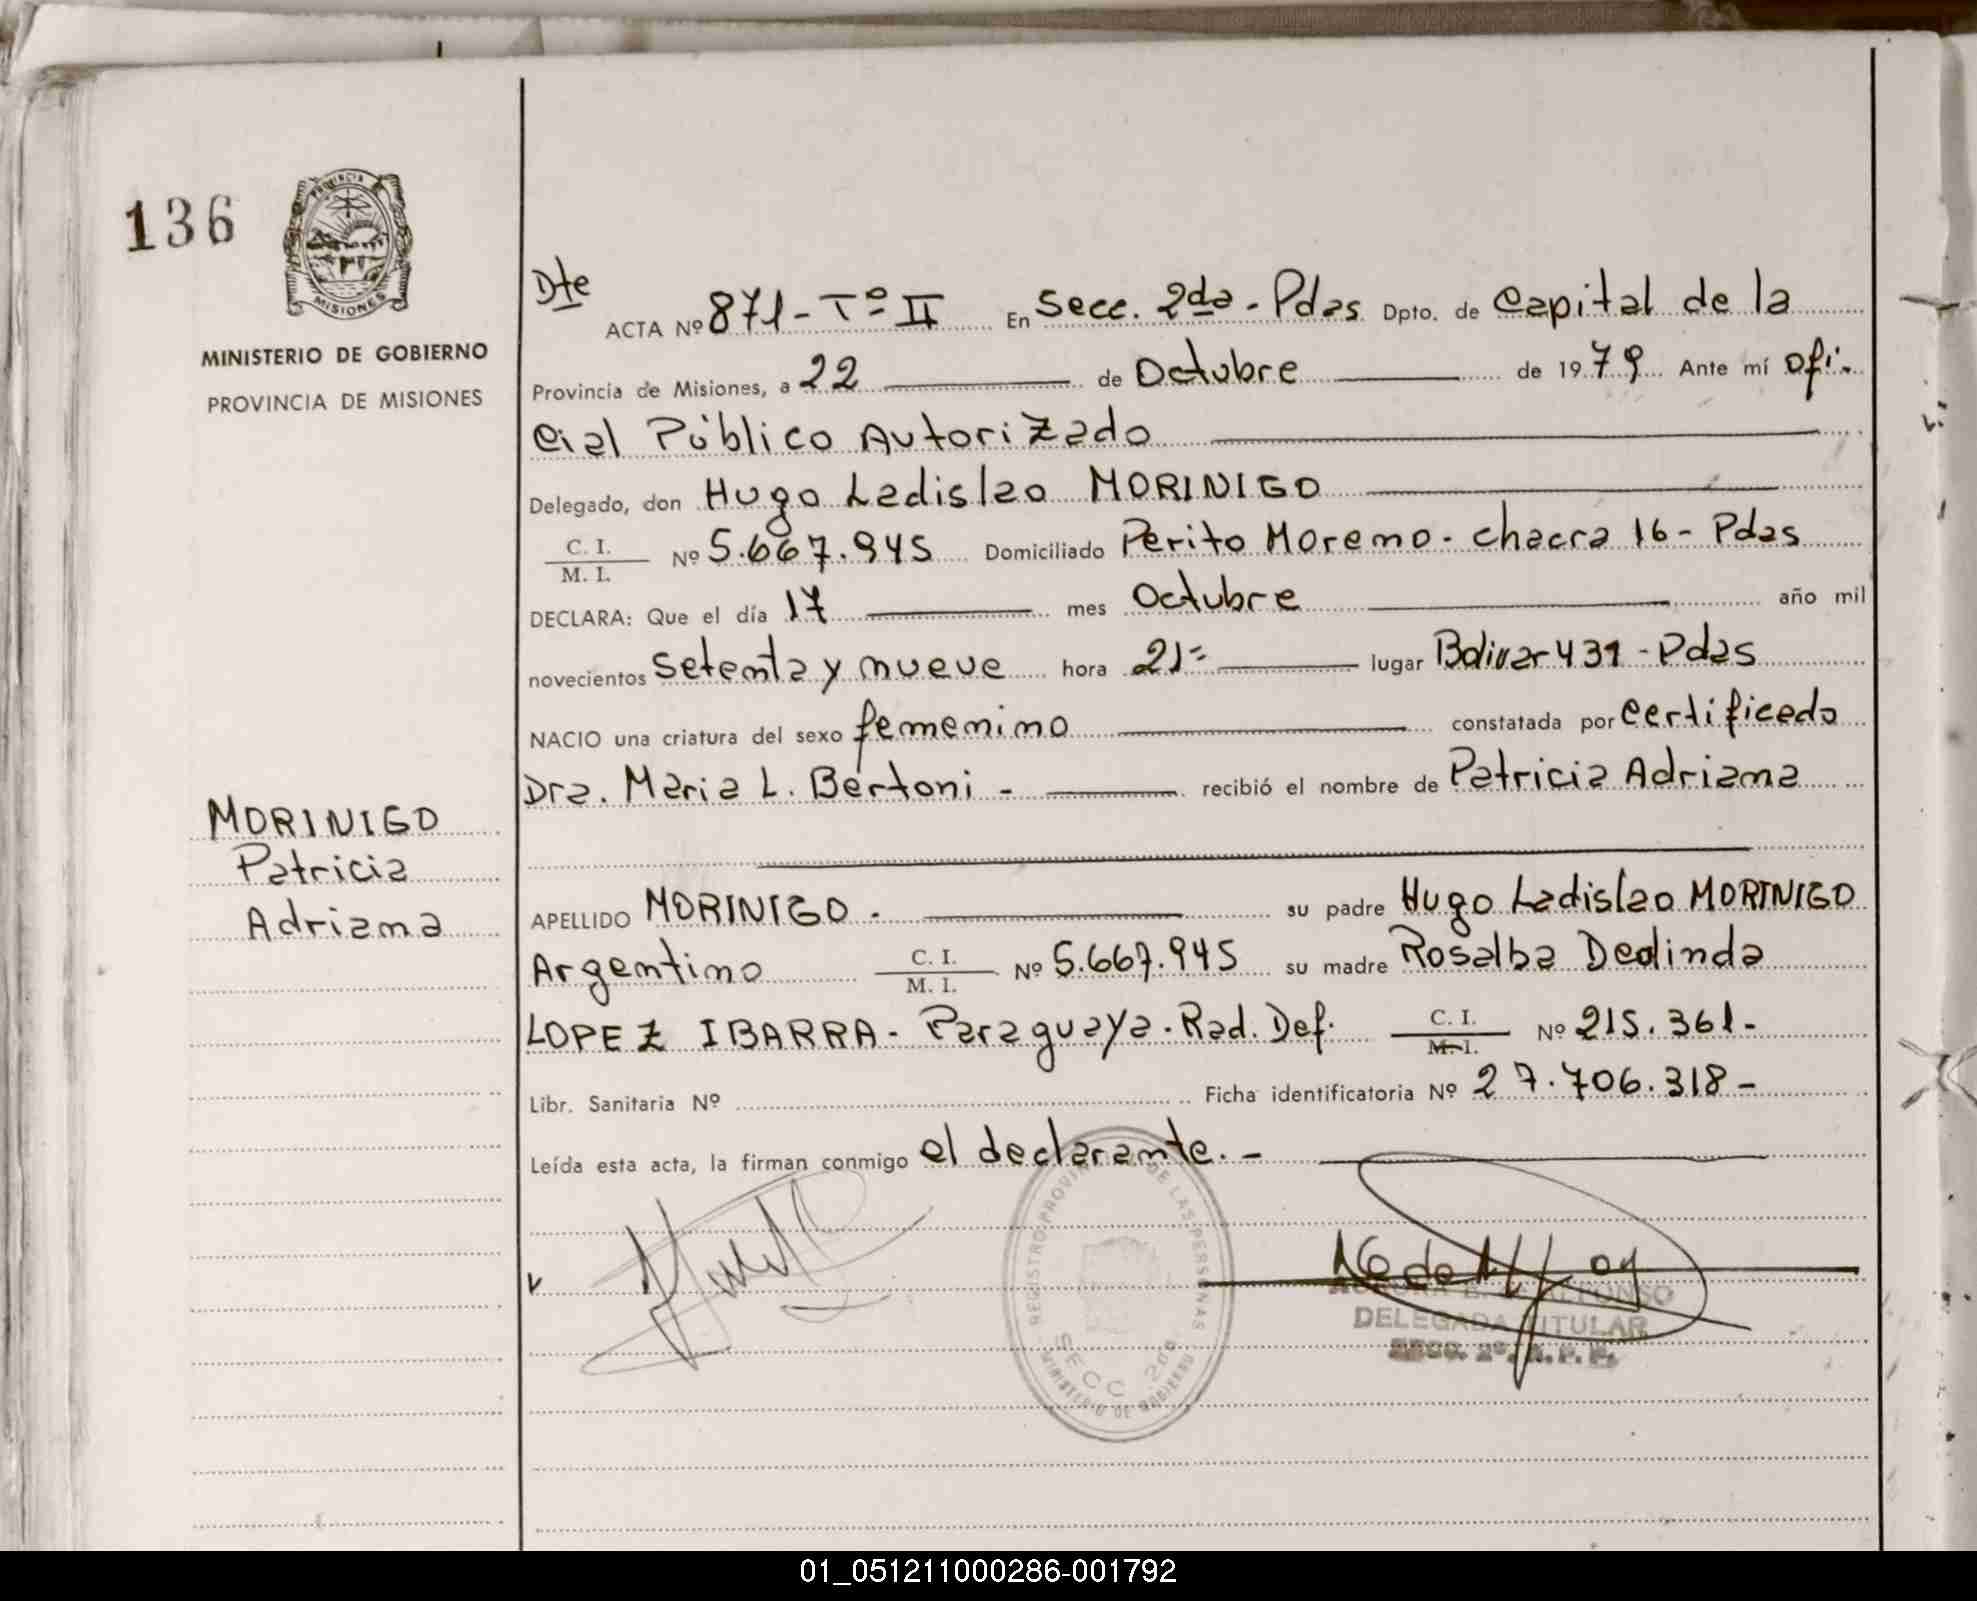 136
PROVINCIA
MISIONES
MINISTERIO DE GOBIERNO
PROVINCIA DE MISIONES
MORINIGO
Patricia
Adriana
Dte
ACTA Nº 871 - Tº II En Secc. 2da - Pdas Dpto. de Capital de la
Provincia de Misiones, a 22 de Octubre de 1979 Ante mí ofi-
cial Público Autorizado
Delegado, don Hugo Ladislao MORINIGO
C. I. / M. I. Nº 5.667.945 Domiciliado Perito Moreno - chacra 16 - Pdas
DECLARA: Que el día 17 mes Octubre año mil
novecientos setenta y nueve hora 21= lugar Bolivar 431 - Pdas
NACIO una criatura del sexo femenino constatada por certificado
Dra. Maria L. Bertoni - recibió el nombre de Patricia Adriana
APELLIDO MORINIGO - su padre Hugo Ladislao MORINIGO
Argentino C. I. / M. I. Nº 5.667.945 su madre Rosalba Deolinda
LOPEZ IBARRA - Paraguaya - Rad. Def. C. I. / M. I. Nº 215.361-
Libr. Sanitaria Nº Ficha identificatoria Nº 27.706.318-
Leída esta acta, la firman conmigo el declarante. -
REGISTRO PROVINCIAL DE LAS PERSONAS
SECC 2da
MINISTERIO DE GOBIERNO
DELEGADA TITULAR
SECC. 2ª. R. P. P.
01_051211000286-001792